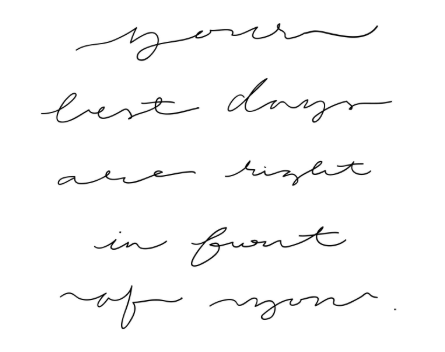 your
best days
are right
in front
of you.